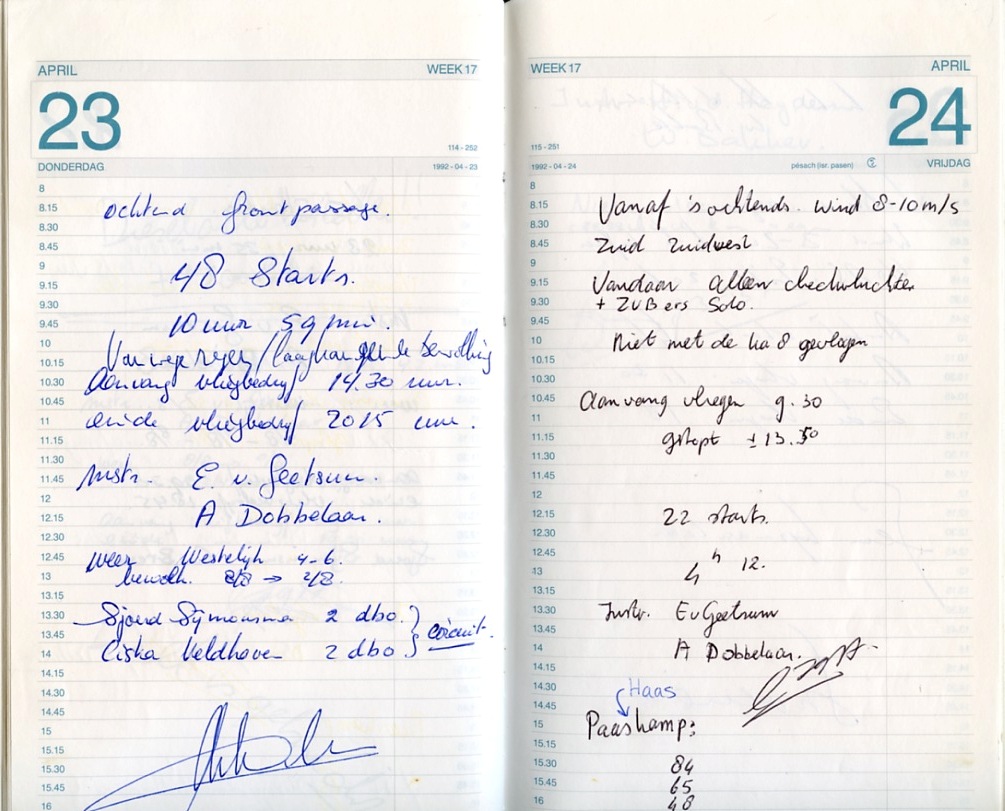 APRIL WEEK 17
23
114 - 252
DONDERDAG 1992 - 04 - 23
8
8.15 ochtend frontpassage.
8.30
8.45
9
9.15 48 Starts.
9.30
9.45 10 uur 59 min.
10 Vanwege regen / laaghangende bewolking
10.15
10.30 Aanvang vliegbedrijf 14.30 uur.
10.45
11 einde vliegbedrijf 2015 uur.
11.15
11.30
11.45 Instr. E. v. Geetsum.
12
12.15 A Dobbelaar.
12.30
12.45 Weer Westelijk 4-6.
13 bewolk. 8/8 → 2/8.
13.15
13.30 Sjoerd Sijmonsma 2 dbo.
13.45 } circuit.
14 Ciska Veldhoven 2 dbo
14.15
14.30
14.45
15
15.15
15.30
15.45
16
WEEK 17 APRIL
24
115 - 251
1992 - 04 - 24 pésach (isr. pasen) VRIJDAG
8
8.15 Vanaf 's ochtends. wind 8-10 m/s
8.30
8.45 Zuid Zuidwest
9
9.15 Vandaar alleen checkvluchten
9.30 + ZVB ers Solo.
9.45
10 Niet met de ka 8 gevlogen
10.15
10.30
10.45 Aanvang vliegen 9.30
11
11.15 gestopt ± 13.30
11.30
11.45
12
12.15 22 starts.
12.30
12.45
13 4 h 12.
13.15
13.30 Instr. E v Geetsum
13.45
14 A Dobbelaar.
14.15
14.30 Haas
14.45
15 Paaskamp:
15.15
15.30 84
15.45 65
16 48